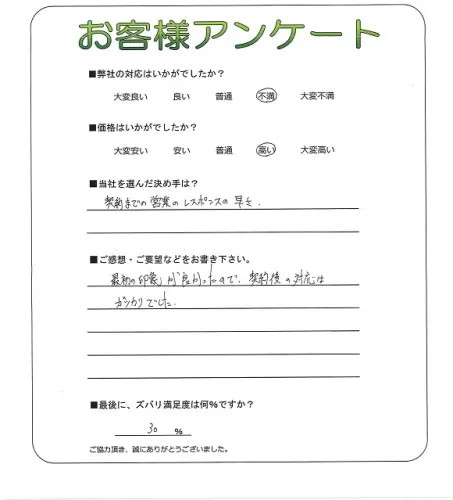 お客様アンケート
■弊社の対応はいかがでしたか？
大変良い 良い 普通 不満 大変不満
■価格はいかがでしたか？
大変安い 安い 普通 高い 大変高い
■当社を選んだ決め手は？
契約までの営業のレスポンスの早さ．
■ご感想・ご要望などをお書き下さい。
最初の印象が良かったので、契約後の対応は
ガッカリでした．
■最後に、ズバリ満足度は何％ですか？
30 ％
ご協力頂き、誠にありがとうございました。